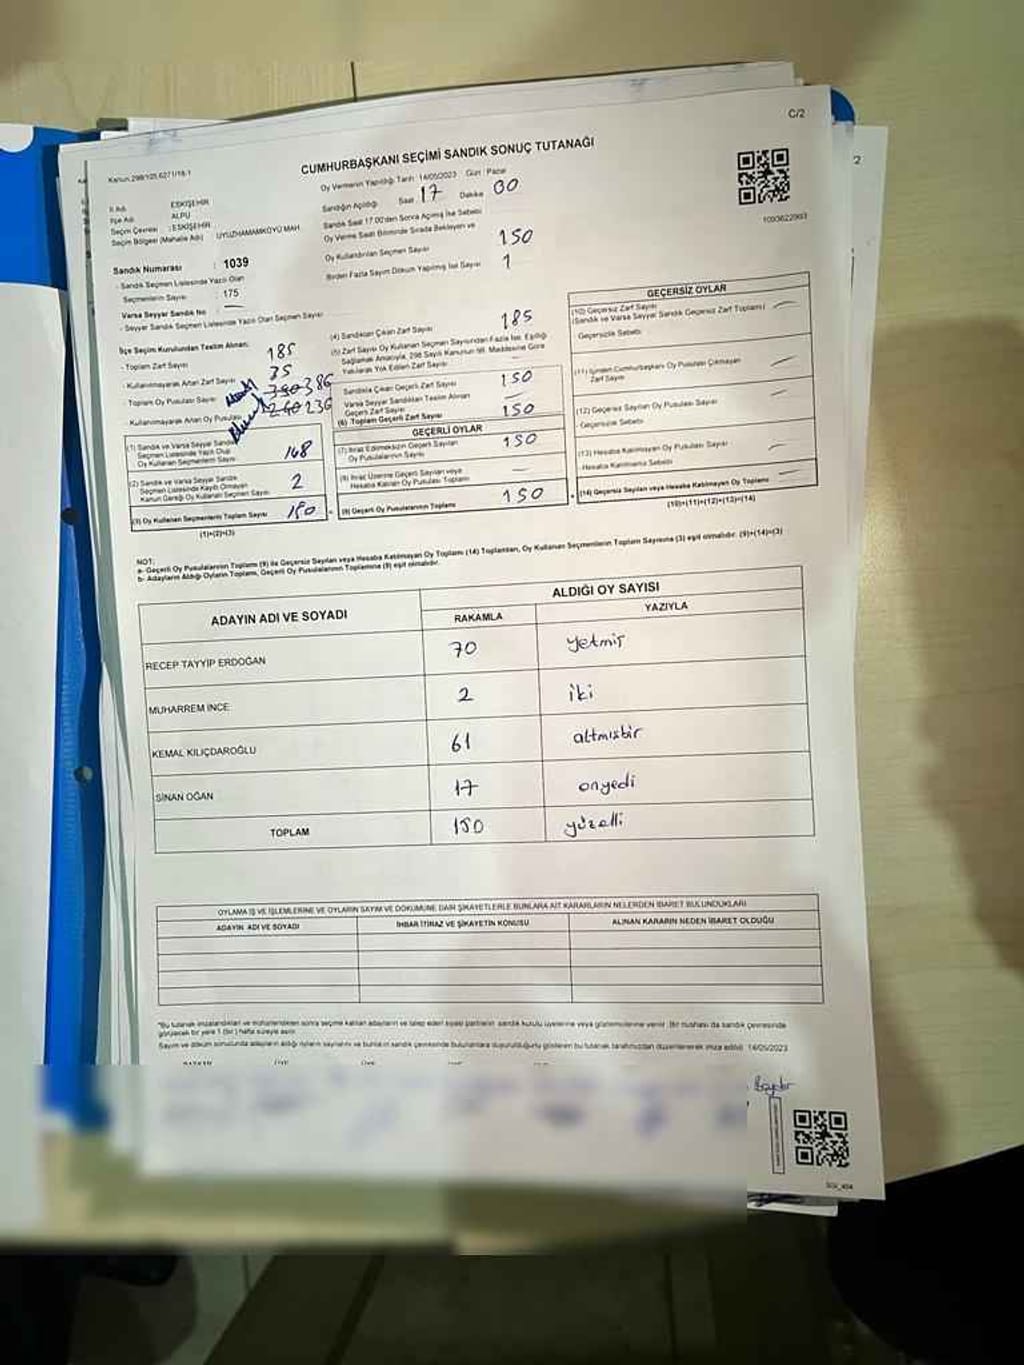 C/2
Kanun:298/105,6271/18-1
CUMHURBAŞKANI SEÇİMİ SANDIK SONUÇ TUTANAĞI
Oy Vermenin Yapıldığı Tarih : 14/05/2023 Gün : Pazar
İl Adı : ESKİŞEHİR
İlçe Adı : ALPU
Seçim Çevresi : ESKİŞEHİR
Seçim Bölgesi (Mahalle Adı) : UYUZHAMAMKÖYÜ MAH.
Sandığın Açıldığı Saat 17 Dakika 00
Sandık Saat 17:00'den Sonra Açılmış İse Sebebi
Oy Verme Saati Bitiminde Sırada Bekleyen ve
Oy Kullandırılan Seçmen Sayısı 150
Birden Fazla Sayım Döküm Yapılmış İse Sayısı 1
Sandık Numarası : 1039
- Sandık Seçmen Listesinde Yazılı Olan
Seçmenlerin Sayısı : 175
Varsa Seyyar Sandık No : —
- Seyyar Sandık Seçmen Listesinde Yazılı Olan Seçmen Sayısı
İlçe Seçim Kurulundan Teslim Alınan;
- Toplam Zarf Sayısı 185
- Kullanılmayarak Artan Zarf Sayısı 35
- Toplam Oy Pusulası Sayısı 386
- Kullanılmayarak Artan Oy Pusulası 236
(1) Sandık ve Varsa Seyyar Sandık
Seçmen Listesinde Yazılı Olup
Oy Kullanan Seçmenlerin Sayısı 148
(2) Sandık ve Varsa Seyyar Sandık
Seçmen Listesinde Kayıtlı Olmayan
Kanun Gereği Oy Kullanan Seçmen Sayısı 2
(3) Oy Kullanan Seçmenlerin Toplam Sayısı 150
(1)+(2)=(3)
(4) Sandıktan Çıkan Zarf Sayısı 185
(5) Zarf Sayısı Oy Kullanan Seçmen Sayısından Fazla İse, Eşitliği
Sağlamak Amacıyla, 298 Sayılı Kanunun 98. Maddesine Göre
Yakılarak Yok Edilen Zarf Sayısı —
Sandıkta Çıkan Geçerli Zarf Sayısı 150
Varsa Seyyar Sandıktan Teslim Alınan
Geçerli Zarf Sayısı —
(6) Toplam Geçerli Zarf Sayısı 150
GEÇERLİ OYLAR
(7) İtiraz Edilmeksizin Geçerli Sayılan
Oy Pusulalarının Sayısı 150
(8) İtiraz Üzerine Geçerli Sayılan veya
Hesaba Katılan Oy Pusulası Toplamı —
(9) Geçerli Oy Pusulalarının Toplamı 150
1093622993
GEÇERSİZ OYLAR
(10) Geçersiz Zarf Sayısı —
(Sandık ve Varsa Seyyar Sandık Geçersiz Zarf Toplamı)
Geçersizlik Sebebi:
(11) İçinden Cumhurbaşkanı Oy Pusulası Çıkmayan
Zarf Sayısı —
(12) Geçersiz Sayılan Oy Pusulası Sayısı —
- Geçersizlik Sebebi:
(13) Hesaba Katılmayan Oy Pusulası Sayısı —
- Hesaba Katılmama Sebebi:
(14) Geçersiz Sayılan veya Hesaba Katılmayan Oy Toplamı —
(10)+(11)+(12)+(13)=(14)
NOT:
a- Geçerli Oy Pusulalarının Toplamı (9) ile Geçersiz Sayılan veya Hesaba Katılmayan Oy Toplamı (14) Toplamları, Oy Kullanan Seçmenlerin Toplam Sayısına (3) eşit olmalıdır. (9)+(14)=(3)
b- Adayların Aldığı Oyların Toplamı, Geçerli Oy Pusulalarının Toplamına (9) eşit olmalıdır.
ADAYIN ADI VE SOYADI ALDIĞI OY SAYISI
RAKAMLA YAZIYLA
RECEP TAYYİP ERDOĞAN 70 yetmiş
MUHARREM İNCE 2 iki
KEMAL KILIÇDAROĞLU 61 altmışbir
SİNAN OĞAN 17 onyedi
TOPLAM 150 yüzelli
OYLAMA İŞ VE İŞLEMLERİNE VE OYLARIN SAYIM VE DÖKÜMÜNE DAİR ŞİKAYETLERLE BUNLARA AİT KARARLARIN NELERDEN İBARET BULUNDUKLARI
ADAYIN ADI VE SOYADI İHBAR İTİRAZ VE ŞİKAYETİN KONUSU ALINAN KARARIN NEDEN İBARET OLDUĞU
*Bu tutanak imzalandıktan ve mühürlendikten sonra seçime katılan adayların ve talep eden siyasi partilerin sandık kurulu üyelerine veya gözlemcilerine verilir. Bir nüshası da sandık çevresinde
görülecek bir yere 1 (bir) hafta süreyle asılır.
14/05/2023